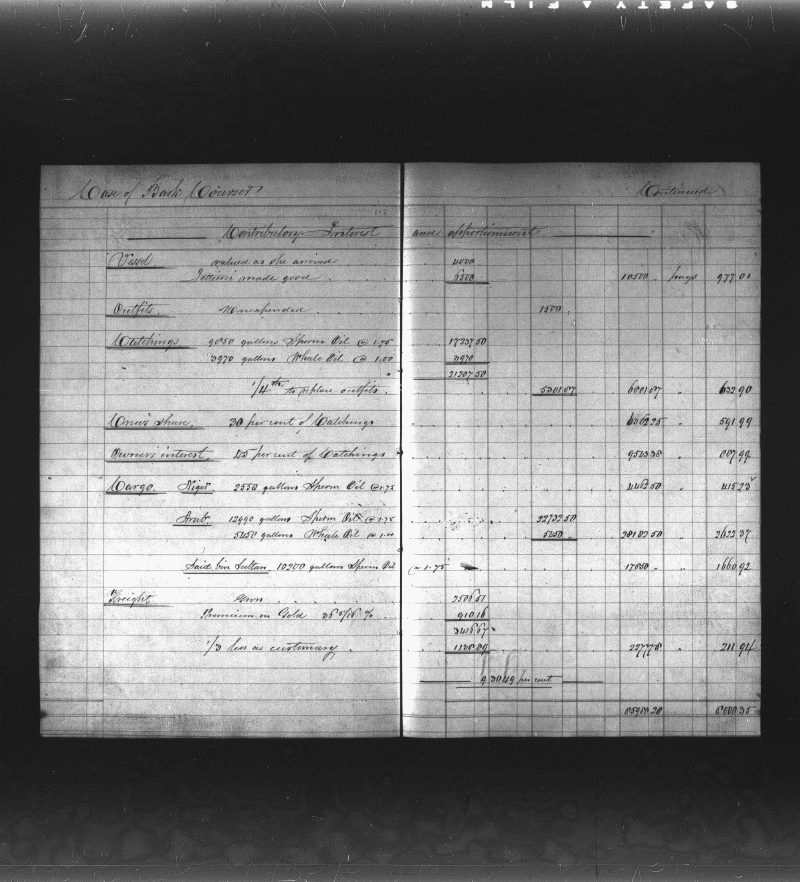 Case of Bark Courser Continued
Contributory Interest and apportionment
Vessel valued as she arrived 4000
made good 6500 10500 pays 977.01
Outfits. Unexpended 1500
Catchings 9850 gallons Sperm Oil @ 1.75 17237.50
3970 gallons Whale Oil @ 1.00 3970
21207.50
1/4th to replace outfits. 5301.87 6801.87 " 632.90
Crew's share. 30 per cent of Catchings 6362.25 " 591.99
Owner's interest. 45 per cent of Catchings 9543.38 " 887.99
Cargo. Niger 2550 gallons Sperm Oil @ 1.75 4462.50 " 415.23
Arab. 12990 gallons Sperm Oil @ 1.75 22732.50
5450 gallons Whale Oil @ 1.00 5450 28182.50 " 2622.37
Said bin Sultan. 10200 gallons Sperm Oil @ 1.75 17850 " 1660.92
Freight Gross 2506.51
Premium on Gold 36 5/16 % 910.16
3416.67
1/3 less as customary. 1138.89 2277.78 " 211.94
9.3049 per cent
85980.28 8000.35